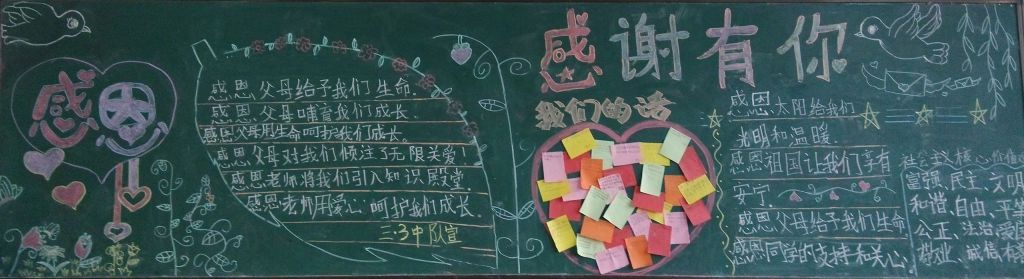 感恩
感恩父母给予我们生命.
感恩父母哺育我们成长.
感恩父母用生命呵护我们成长.
感恩父母对我们倾注了无限关爱!
感恩老师将我们引入知识殿堂.
感恩老师用爱心呵护我们成长.
三.3中队宣
感谢有你
我们的话
感恩太阳给我们
光明和温暖.
感恩祖国让我们享有
安宁.
感恩父母给予我们生命
感恩同学的支持和关心.
社会主义核心价值
富强、民主、文明
和谐、自由、平等
公正、法治、爱国
敬业、诚信、友